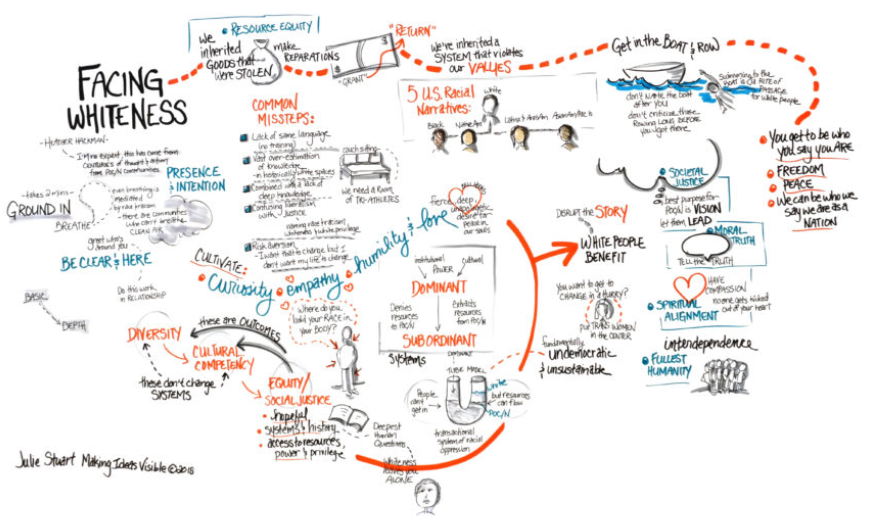 FACING
WHITENESS
- HEATHER HACKMAN -
RESOURCE EQUITY
we
inherited
GOODS that
were STOLEN
make
REPARATIONS
"GRANT"
"RETURN"
we've inherited a
SYSTEM that violates
our VALUES
Get in the BOAT & ROW
don't wake the boat
after you
don't criticize those
Rowing LONG before
you got there
Swimming to the
BOAT is OUR RITE of
PASSAGE
for white people
You get to be who
you say you ARE
FREEDOM
PEACE
We can be who we
say we are as a
NATION
PRESENCE
& INTENTION
- takes 2 mins -
GROUND IN
BREATHE
even breathing is
mediated
by race & racism
- there are communities
who can't breathe
CLEAN AIR
greet who's
around you
BE CLEAR & HERE
Do this work
in RELATIONSHIP
BASIC
DEPTH
COMMON
MISSTEPS:
Lack of same language
(no training)
Vast over-estimation
of knowledge
- in historically white spaces
Combined with a lack of
deep knowledge
Confusing liberalism
with Justice
naming race & racism,
whiteness & white privilege
Risk aversion
- I want that to change but I
don't want my life to change
couch sitting
we need a ROOM
of TRI-ATHLETES
5 U.S. Racial
Narratives:
White
Black
CULTIVATE:
Curiosity
empathy
humility &
love
fierce, deep,
desire for
peace in
our souls
institutional
cultural
POWER
DOMINANT
Denies
resources
to POC/N
Exhibits
resources
from POC/N
SUBORDINATE
Systems
Where do you
hold your RACE in
YOUR BODY?
DIVERSITY
these are OUTCOMES
CULTURAL
COMPETENCY
these don't change
SYSTEMS
EQUITY/
SOCIAL JUSTICE
hopeful
systems & history
access to resources,
power & privilege
Deepest
Human
Questions
Whiteness
leaves you
ALONE
TUBE MODEL
People
can't
get in
white
but resources
can flow
POC/N
transactional
system of racial
oppression
fundamentally
undemocratic
& unsustainable
DISRUPT the STORY
WHITE PEOPLE
BENEFIT
You want to get to
CHANGE IN a HURRY?
put TRANS WOMEN
in the CENTER
SOCIETAL
JUSTICE
best purpose for
POC/N is VISION
let them LEAD
MORAL
TRUTH
TELL the TRUTH
HAVE
COMPASSION
no one gets kicked
out of your heart
SPIRITUAL
ALIGNMENT
interdependence
FULLEST
HUMANITY
Julie Stuart Making Ideas Visible ©2018